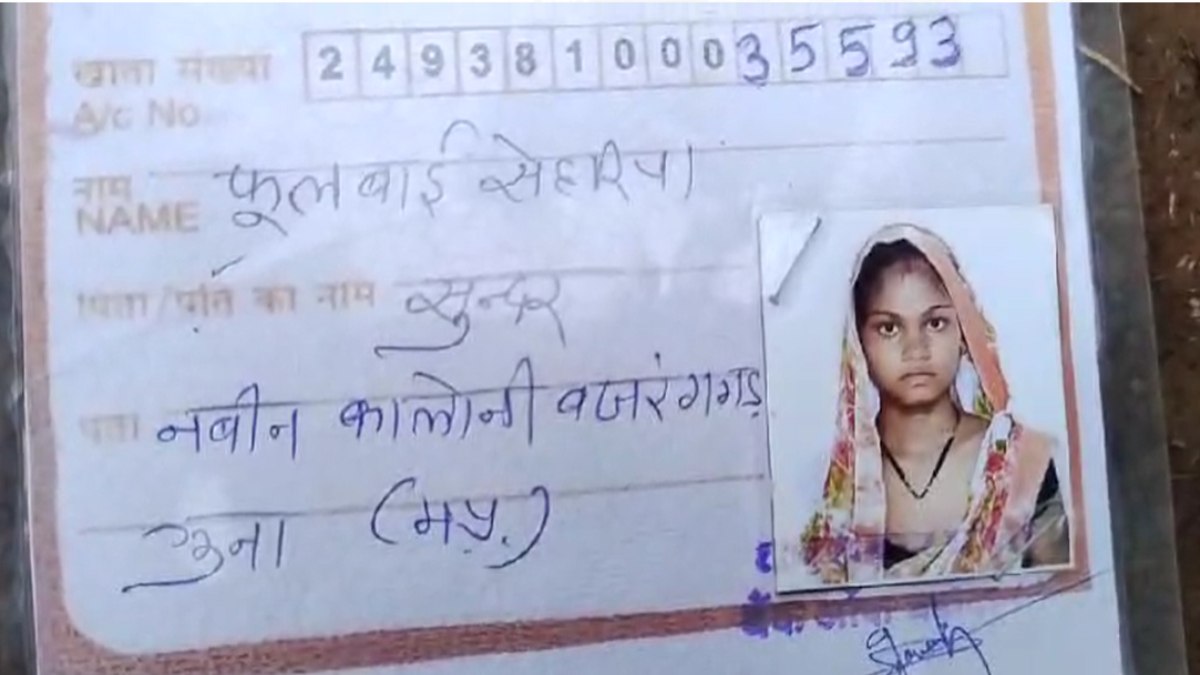 खाता संख्या 24938100035593
A/c No
नाम
NAME फूलबाई सेहरिया
पिता/पति का नाम सुन्दर
पता नबीन कालोनी बजरंगगढ़
गुना (म.प्र.)